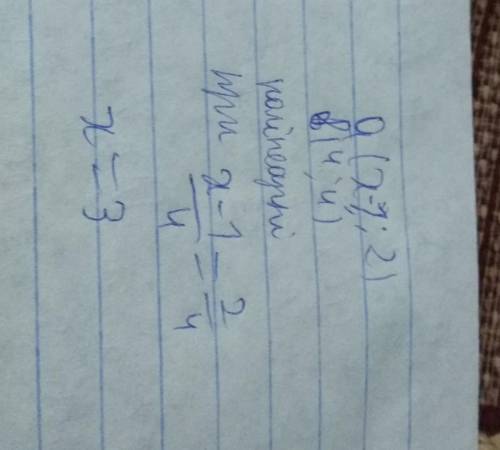 a (x-1; 2)
b (4; 4)
колінеарні
при x-1/4 = 2/4
x = 3